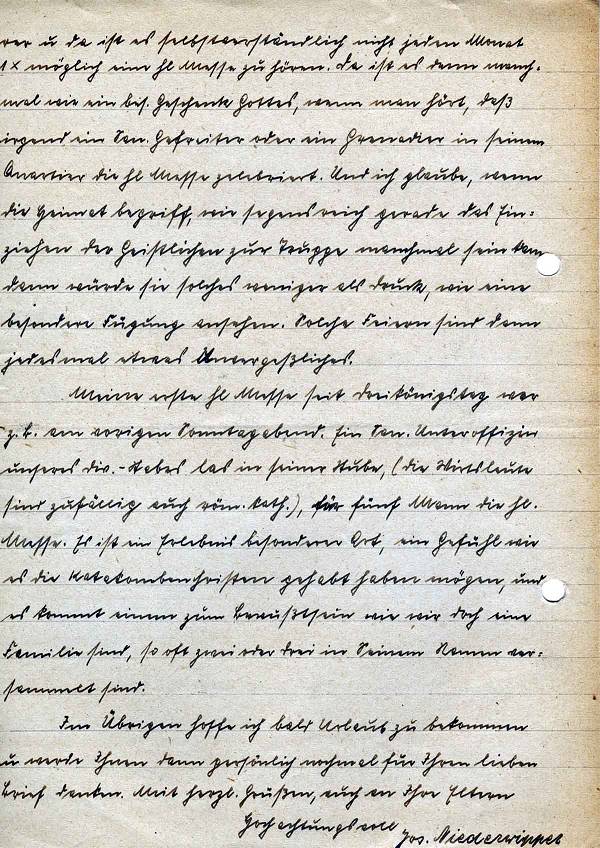 rer u da ist es selbstverständlich nicht jeden Monat
1x möglich eine hl Messe zu hören. Da ist es dann manch-
mal wie ein bes. Geschenk Gottes, wenn man hört, daß
irgend ein San. Gefreiter oder ein Grenadier in seinem
Quartier die hl Messe zelebriert. Und ich glaube, wenn
die Heimat begriff, wie segensreich gerade das Ein-
ziehen der Geistlichen zur Truppe manchmal sein kann
dann würde sie solches weniger als Druck, wie eine
besondere Fügung ansehen. Solche Feiern sind dann
jedesmal etwas Unvergeßliches.
Meine erste hl Messe seit Dreikönigstag war
z.B. am vorigen Sonntagabend. Ein San. Unteroffizier
unseres Div.-Stabes las in seiner Stube, (die Wirtsleute
sind zufällig auch röm. kath.), für fünf Mann die hl.
Messe. Es ist ein Erlebnis besonderer Art, ein Gefühl wie
es die Katakombenchristen gehabt haben mögen, und
es kommt einem zum Bewußtsein wie wir doch eine
Familie sind, so oft zwei oder drei in Seinem Namen ver-
sammelt sind.
Im Übrigen hoffe ich bald Urlaub zu bekommen
u werde Ihnen dann persönlich nochmal für Ihren lieben
Brief danken. Mit herzl. Grüßen, auch an Ihre Eltern
Hochachtungsvoll
Jos. Niederwipper